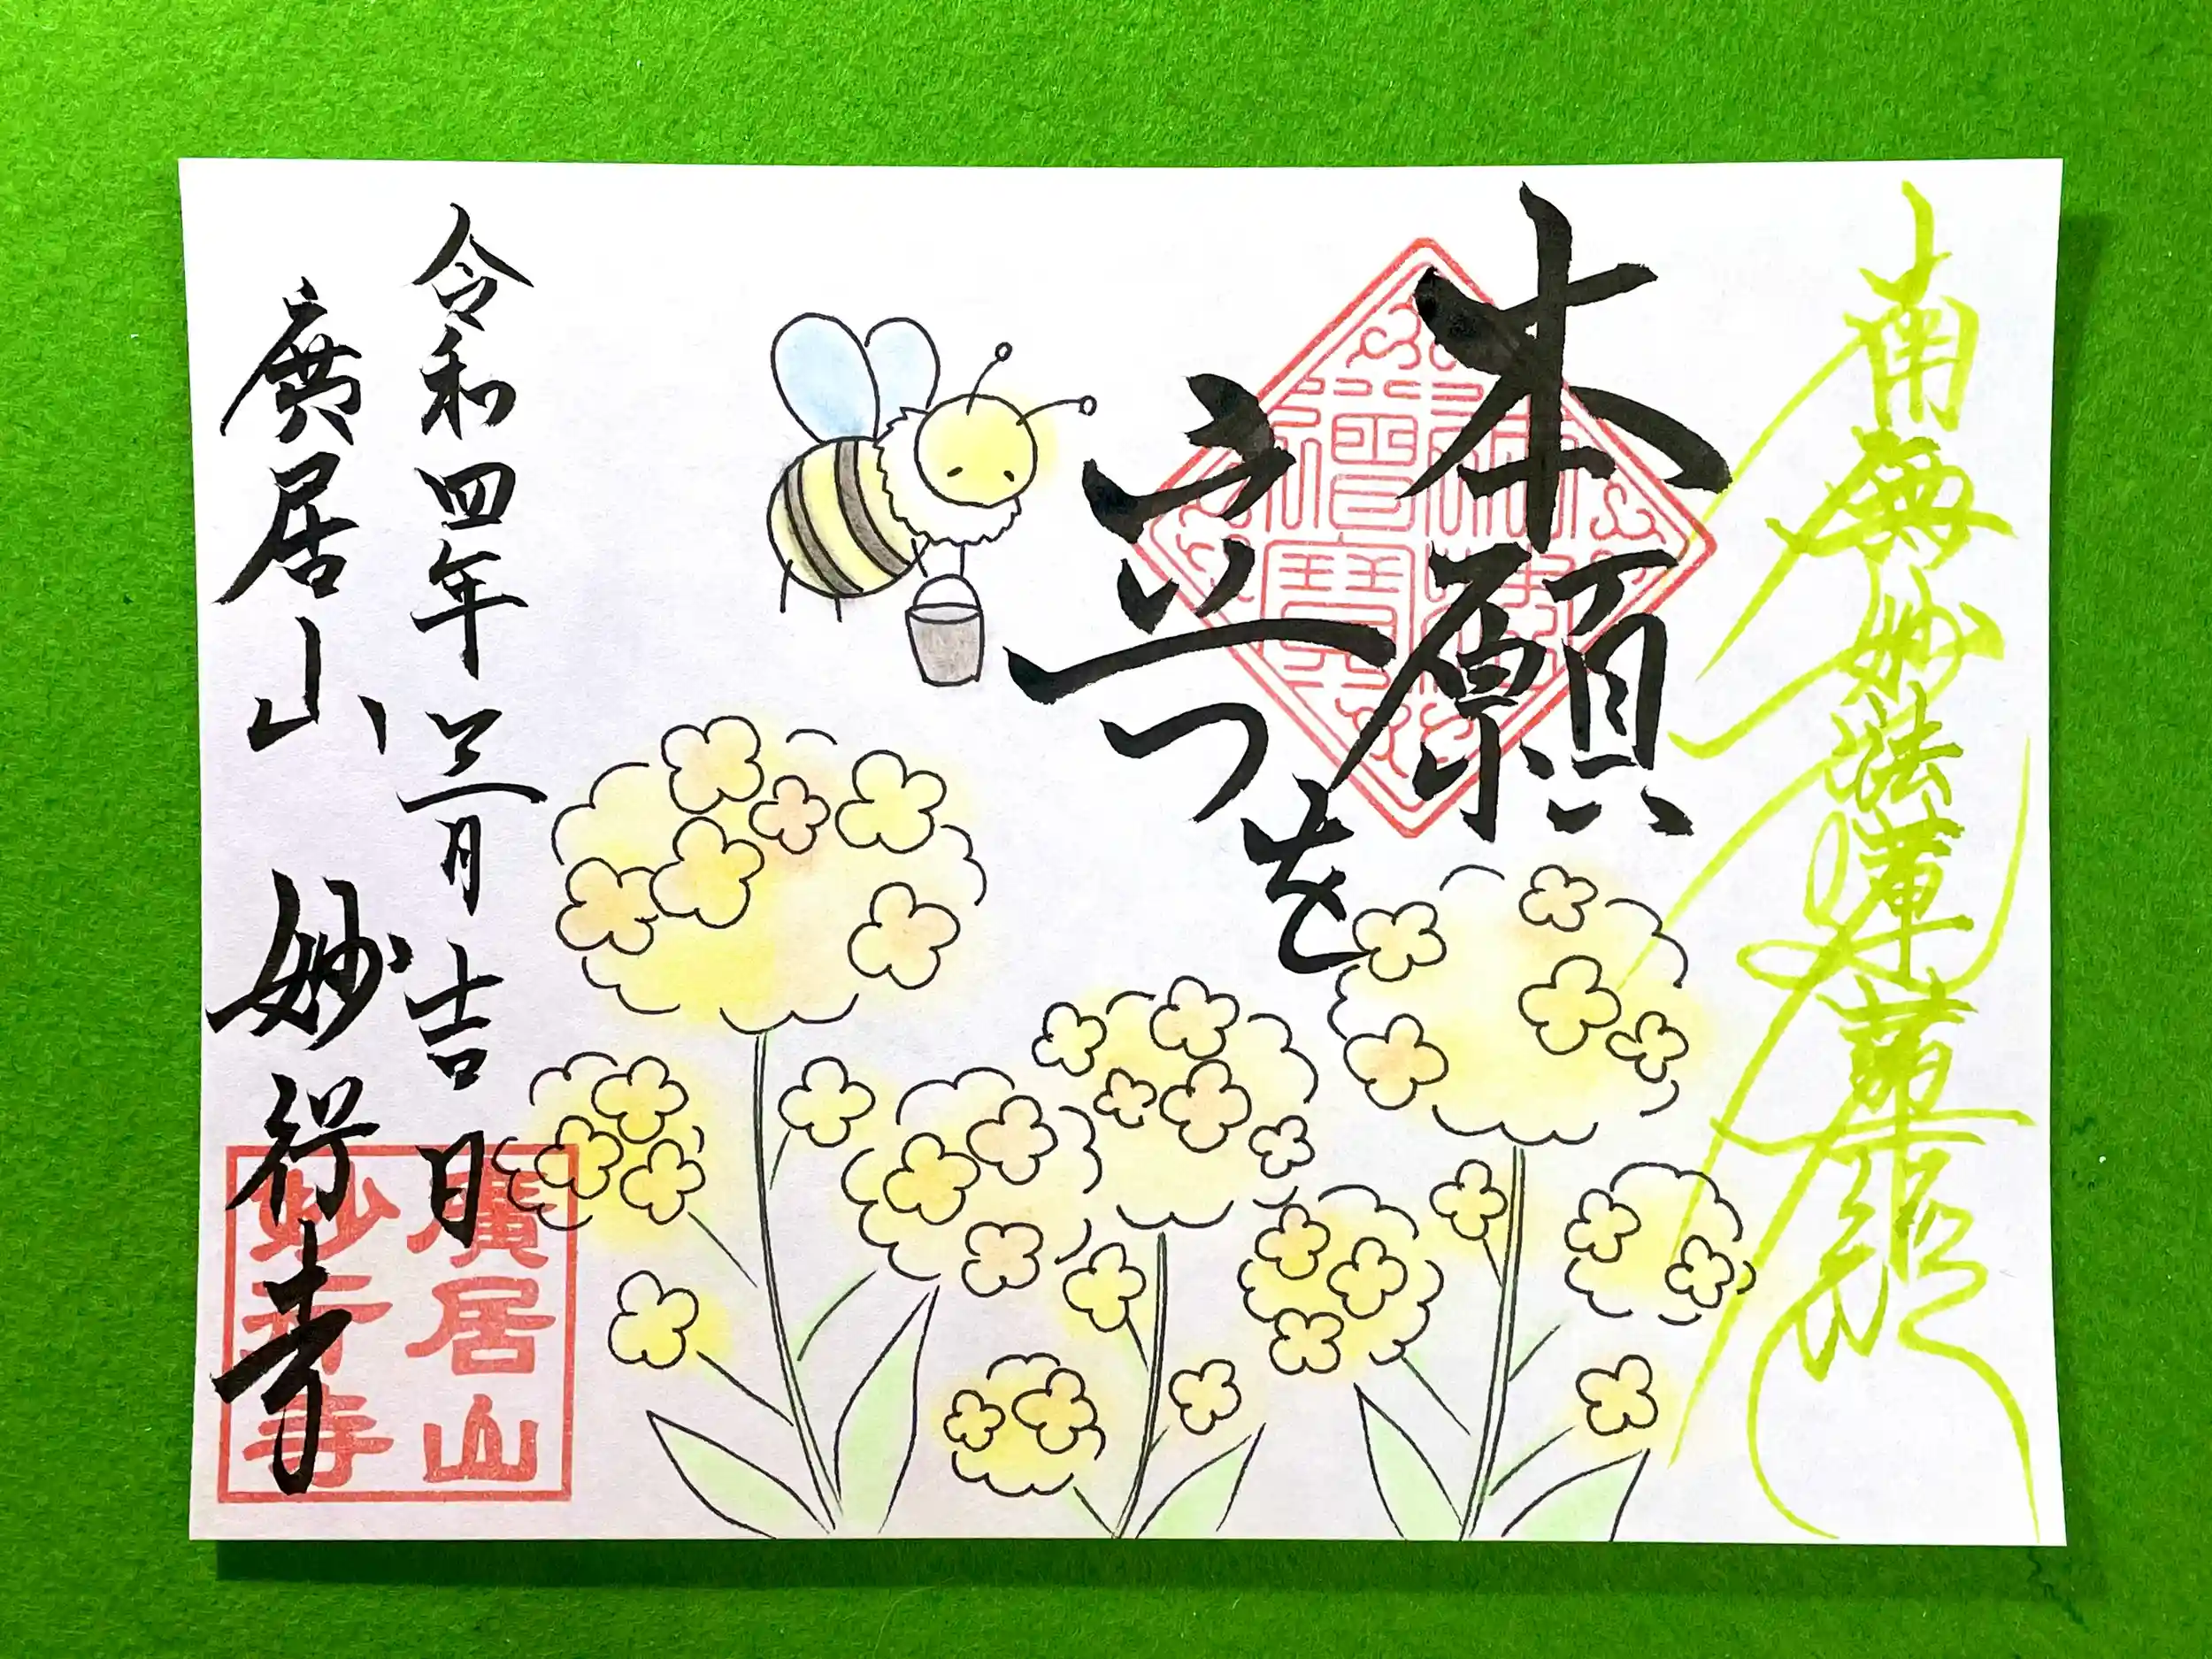 南無妙法蓮華経
本願を
立つ
令和四年三月吉日
廣居山 妙行寺
廣居山
妙行寺